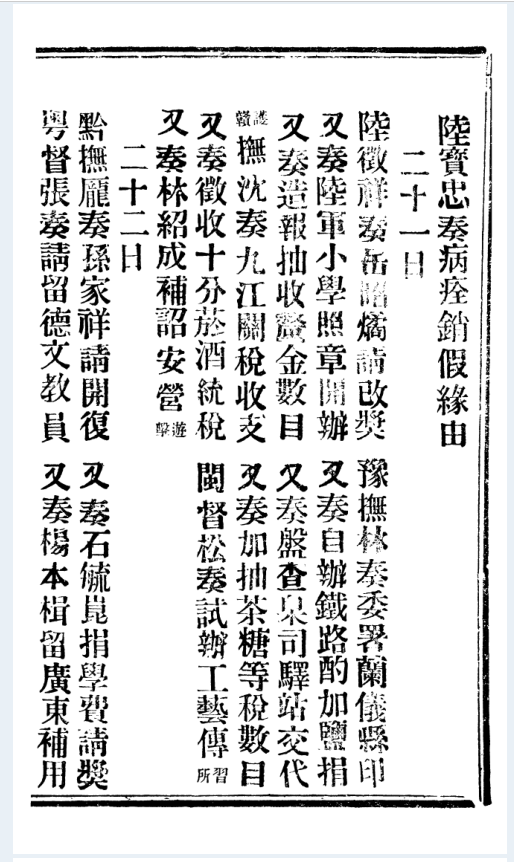 陸寶忠奏病痊銷假緣由
二十一日
陸徵祥奏岳昭燏請改奬　豫撫林奏委署蘭儀縣印
又奏陸軍小學照章開辦　又奏自辦鐵路酌加鹽捐
又奏造報抽收釐金數目　又奏盤查臬司驛站交代
護贛撫沈奏九江關稅收支　又奏加抽茶糖等稅數目
又奏徵收十分菸酒統稅　閩督松奏試辦工藝傳習所
又奏林紹成補詔安營遊擊
二十二日
黔撫龐奏孫家祥請開復　又奏石毓崑捐學費請奬
粵督張奏請留德文教員　又奏楊本楫留廣東補用